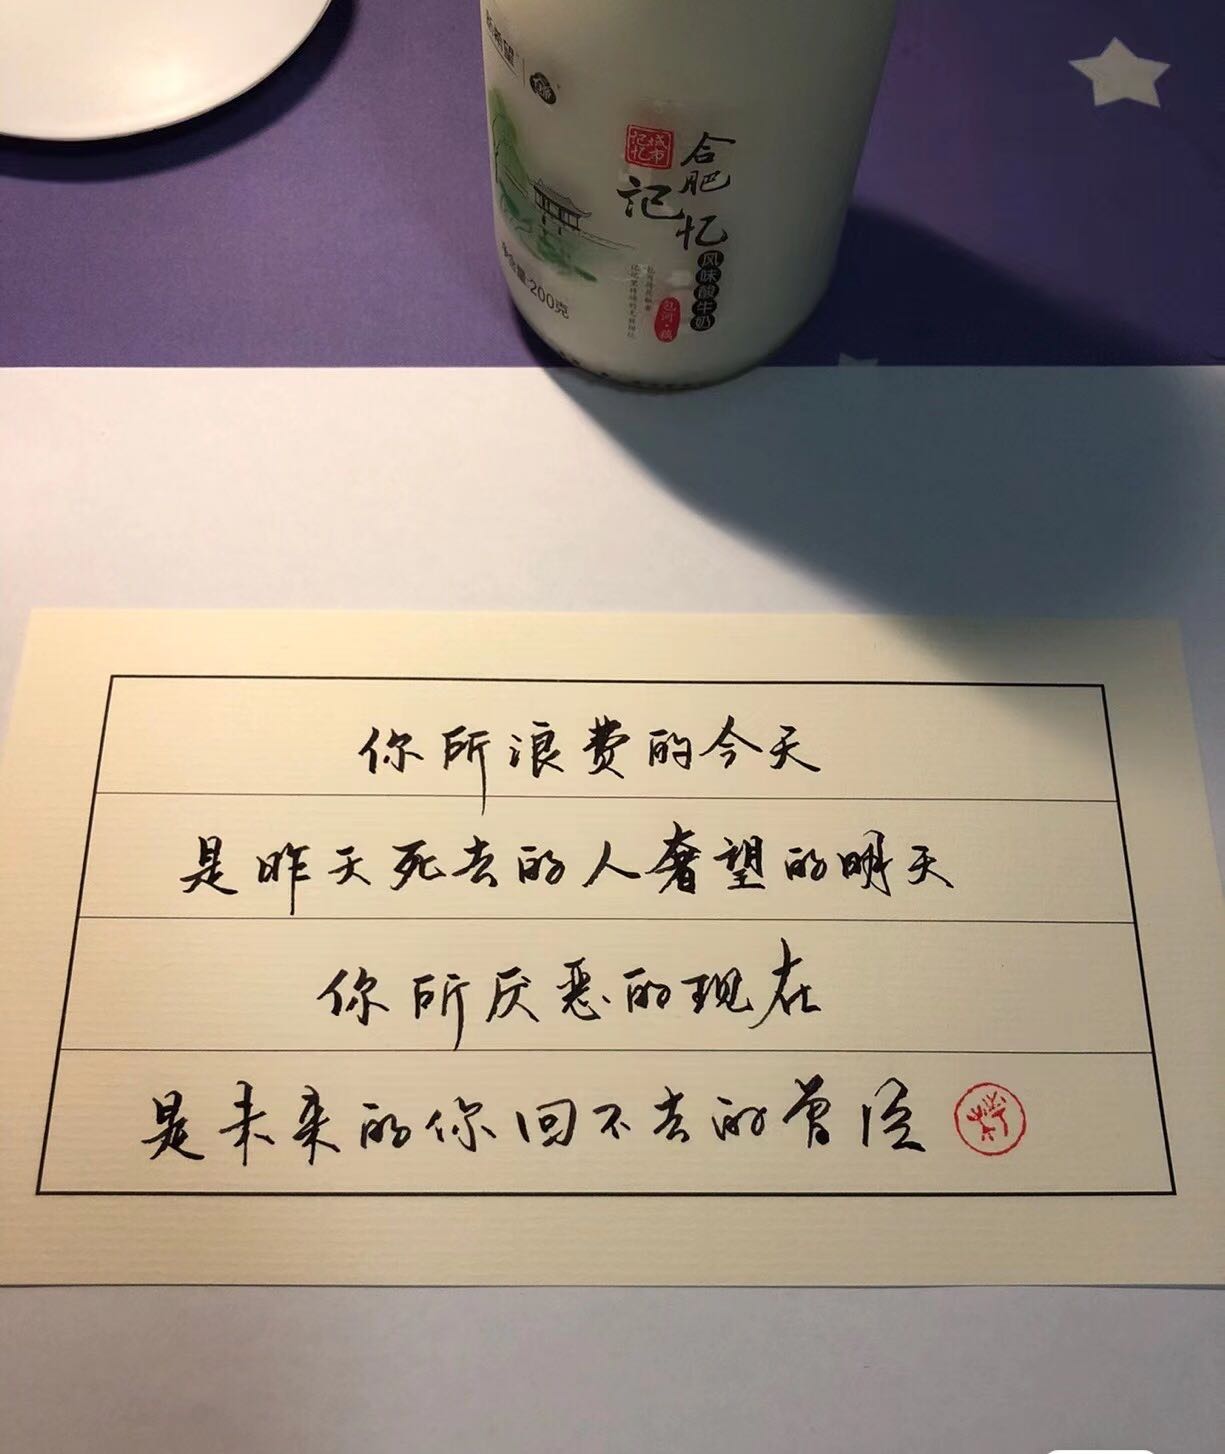 新希望
合肥
记忆
城市
记忆
风味酸牛奶
包河·藕
净含量:200克
你所浪费的今天
是昨天死去的人奢望的明天
你所厌恶的现在
是未来的你回不去的曾经